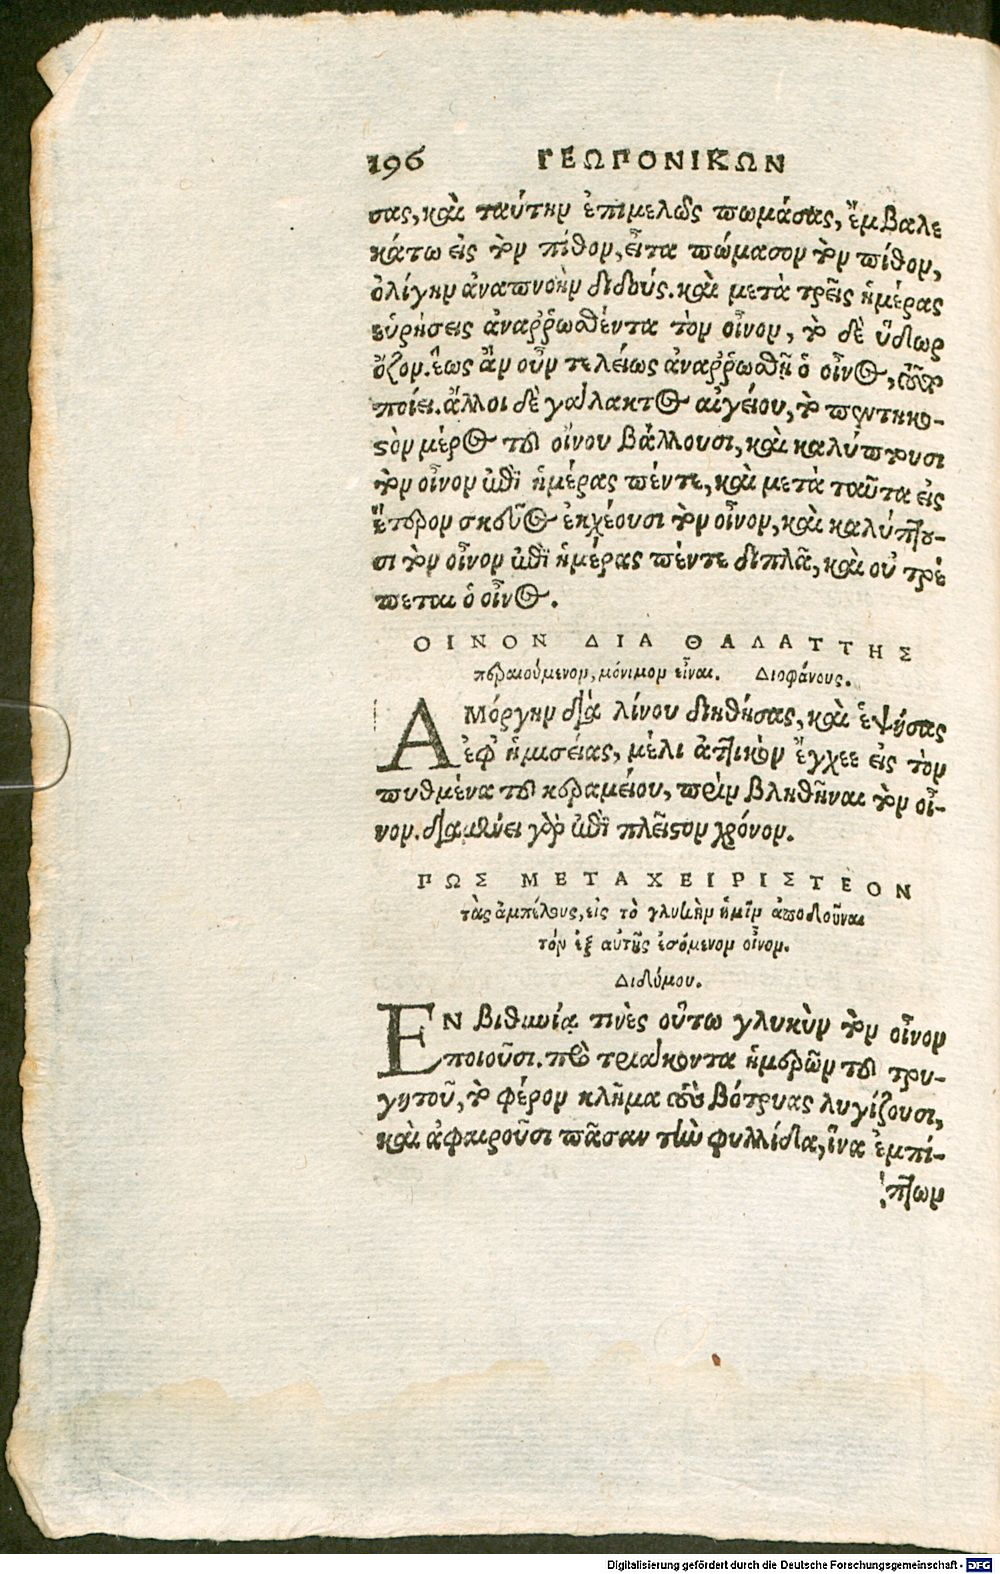 196 ΓΕΩΠΟΝΙΚΩΝ
σας, καὶ ταύτην ἐπιμελῶς πωμάσας, ἔμβαλε
κάτω εἰς τὸν πίθον, εἶτα πώμασον τὸν πίθον,
ὀλίγην ἀναπνοὴν διδούς. καὶ μετὰ τρεῖς ἡμέρας
εὑρήσεις ἀναῤῥωσθέντα τὸν οἶνον, τὸ δὲ ὕδωρ
ὄζον. ἕως ἂν οὖν τελείως ἀναῤῥωσθῇ ὁ οἶνος, τοῦτο
ποίει. ἄλλοι δὲ γάλακτος αἰγείου, τὸ πεντηκο-
στὸν μέρος τοῦ οἴνου βάλλουσι, καὶ καλύπτουσι
τὸν οἶνον ἐπὶ ἡμέρας πέντε, καὶ μετὰ ταῦτα εἰς
ἕτερον σκεῦος ἐκχέουσι τὸν οἶνον, καὶ καλύπτου-
σι τὸν οἶνον ἐπὶ ἡμέρας πέντε διπλᾶ, καὶ οὐ τρέ
πεται ὁ οἶνος.
ΟΙΝΟΝ ΔΙΑ ΘΑΛΑΤΤΗΣ
περαιούμενον, μόνιμον εἶναι. Διοφάνους.
ΑΜόργην διὰ λίνου διηθήσας, καὶ ἑψήσας
ἐφ᾽ ἡμισείας, μέλι ἀττικὸν ἔγχεε εἰς τὸν
πυθμένα τοῦ κεραμείου, πρὶν βληθῆναι τὸν οἶ-
νον. διαμένει γὰρ ἐπὶ πλεῖστον χρόνον.
ΠΩΣ ΜΕΤΑΧΕΙΡΙΣΤΕΟΝ
τὰς ἀμπέλους, εἰς τὸ γλυκὺν ἡμῖν ἀποδοῦναι
τὸν ἐξ αὐτῆς ἐσόμενον οἶνον.
Διδύμου.
ΕΝ βιθυνίᾳ τινὲς οὕτω γλυκὺν τὸν οἶνον
ποιοῦσι. πρὸ τριάκοντα ἡμερῶν τοῦ τρυ-
γητοῦ, τὸ φέρον κλῆμα τοὺς βότρυας λυγίζουσι,
καὶ ἀφαιροῦσι πᾶσαν τὴν φυλλίδα, ἵνα ἐμπί-
πτων
Digitalisierung gefördert durch die Deutsche Forschungsgemeinschaft - DFG